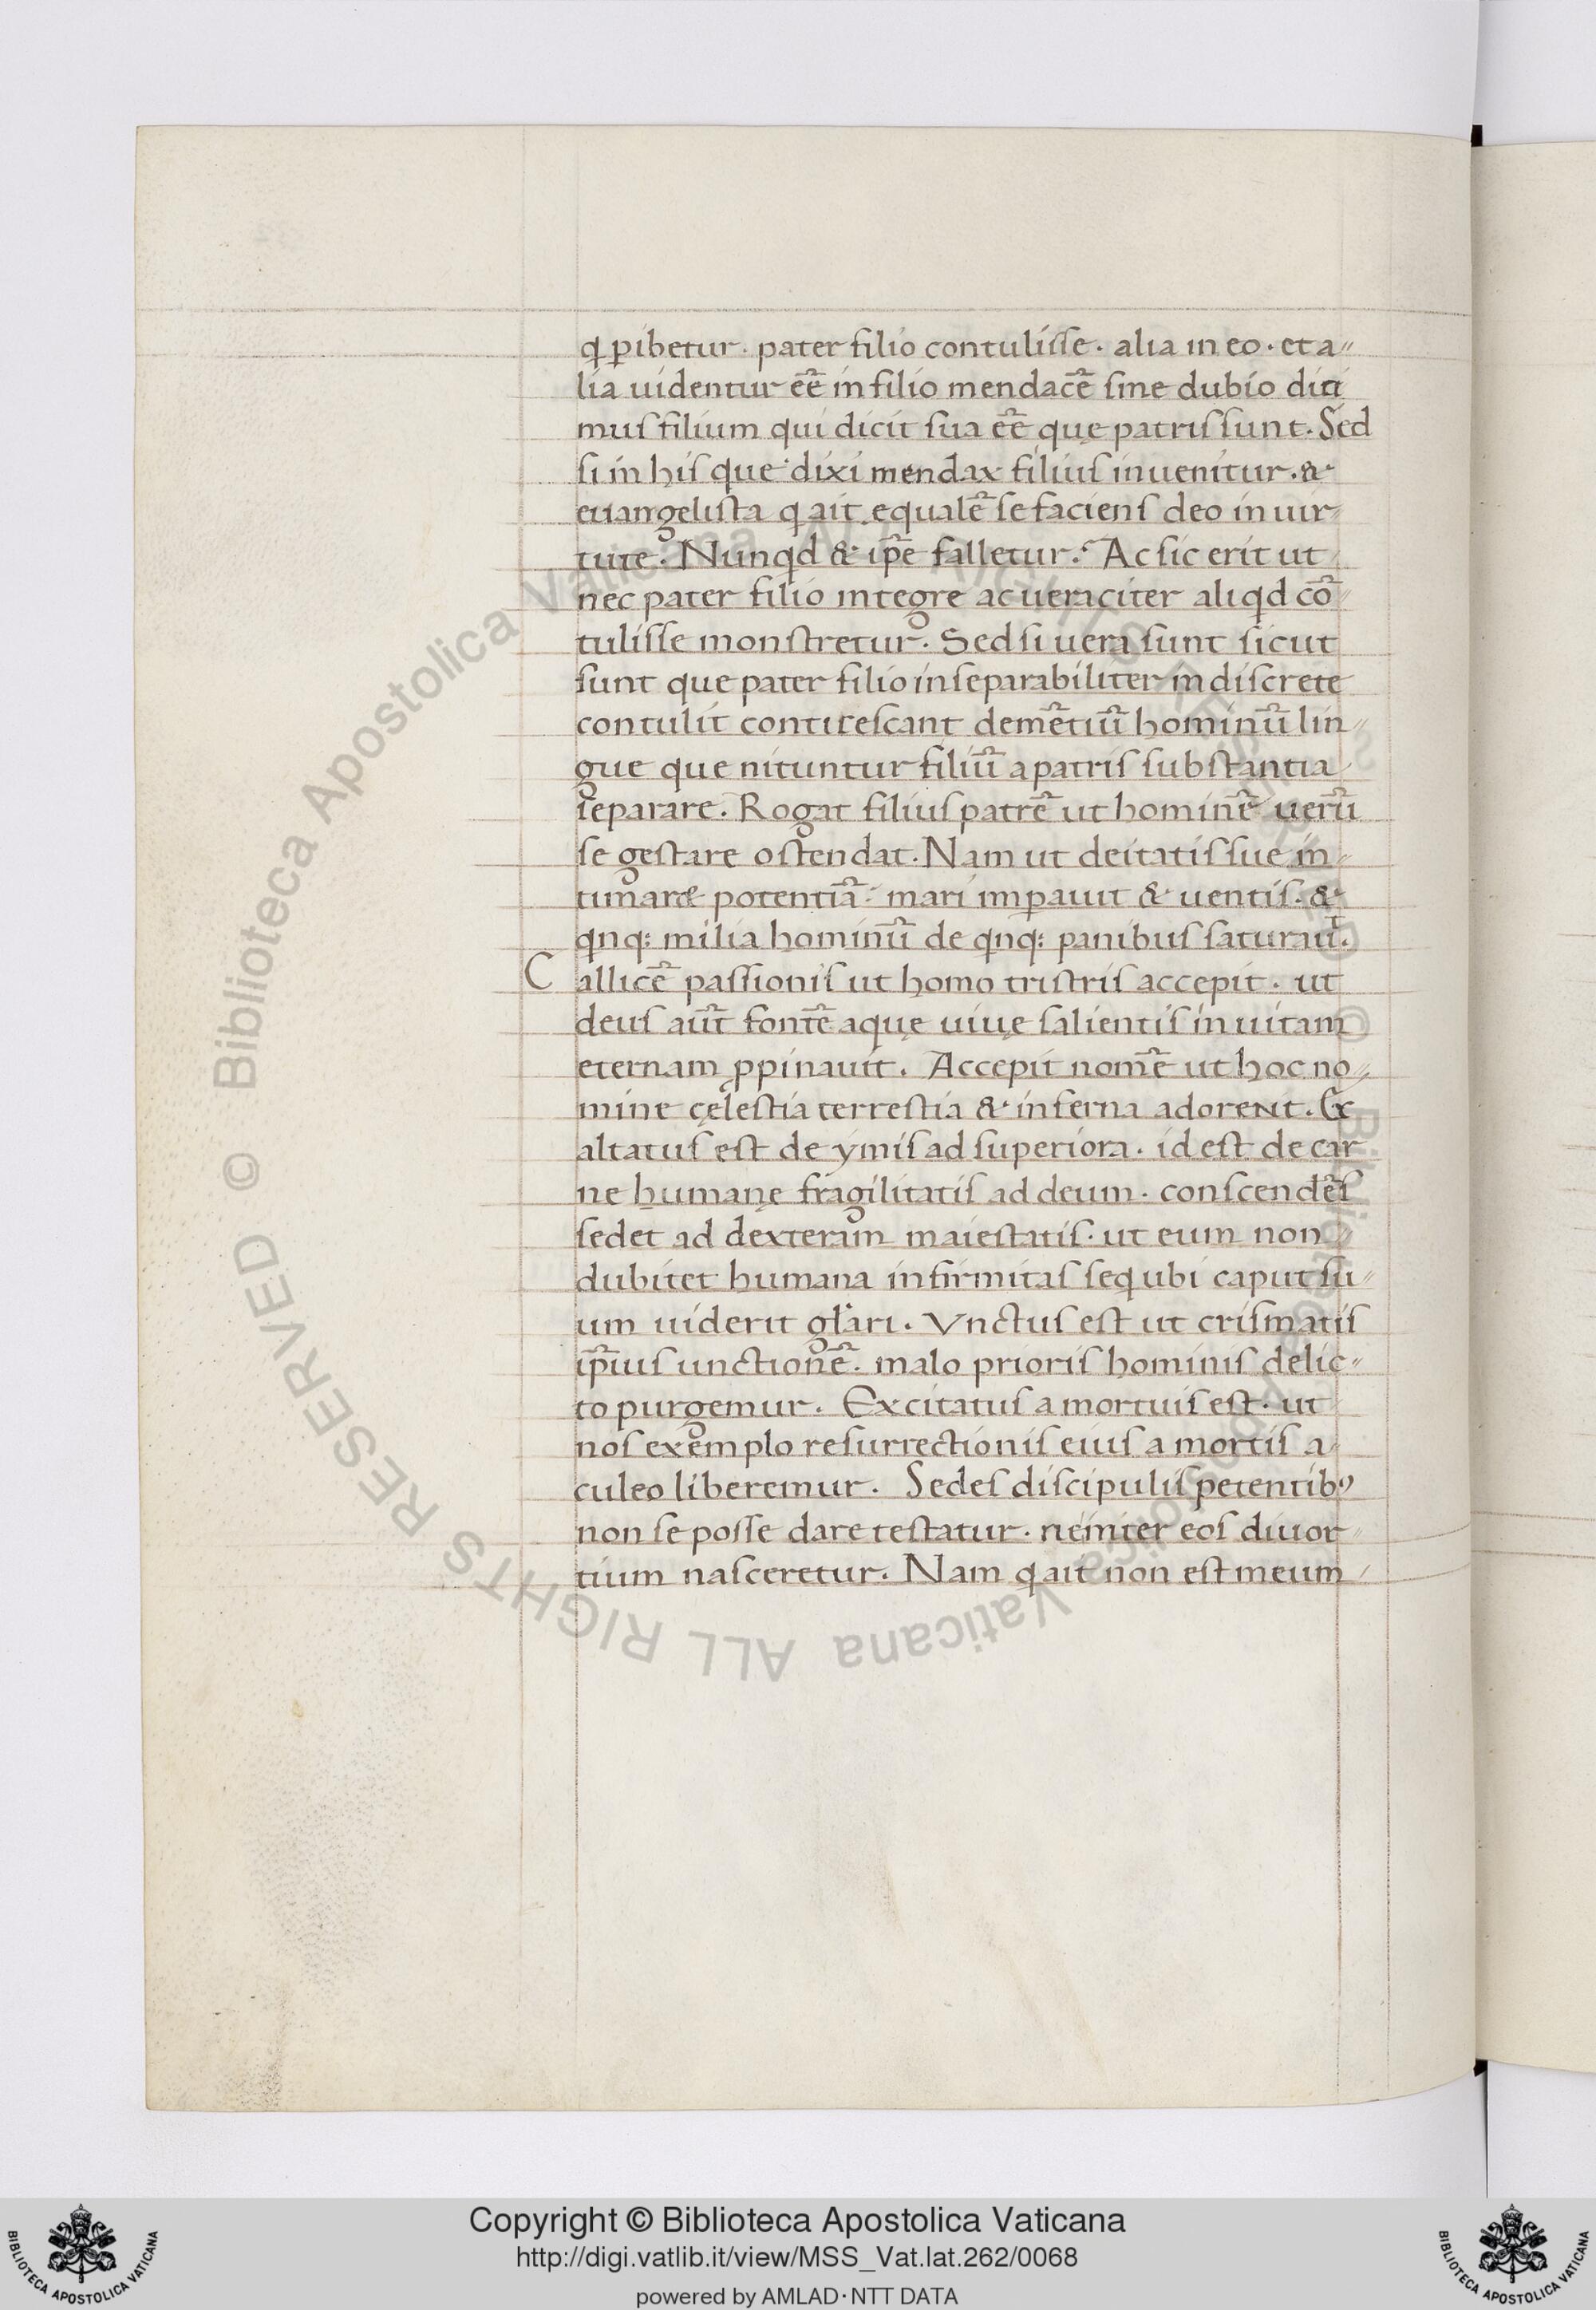 ꝙ ꝑibetur. pater filio contulisse. alia in eo. et a〃
lia uidentur eē in filio mendacē sine dubio dici
mus filium qui dicit sua eē quę patris sunt. Sed
si in his que dixi mendax filius inuenitur. &
euangelista ꝙ ait equalē se faciens deo in uir
tute. Nunqd & ipē falletur. Ac sic erit ut
nec pater filio integre ac ueraciter aliqd cō
tulisse monstretur. Sed si uera sunt sicut
sunt que pater filio inseparabiliter indiscrete
contulit conticescant demētiū hominū lin〃
gue que nituntur filiū a patris substantia
separare. Rogat filius patrē ut hominē uerū
se gestare ostendat. Nam ut deitatis sue in〃
timaret potentiā mari imꝑauit & uentis. &
qnq: milia hominū de qnq: panibus saturauit.
C allicē passionis ut homo tristris accepit. ut
deus aūt fontē aquę uiuę salientis in uitam
eternam ꝓpinauit. Accepit nomē ut hoc no〃
mine cęlestia terrestia & inferna adorent. Ex
altatus est de ymis ad superiora. id est de car
ne humanę fragilitatis ad deum. conscendēs
sedet ad dexteram maiestatis. ut eum non
dubitet humana infirmitas sequi ubi caput su〃
um uiderit gl'ari. Vnctus est ut crismatis
ipīus unctionē. malo prioris hominis delic〃
to purgemur. Excitatus a mortuis est. ut
nos exemplo resurrectionis eius a mortis a
culeo liberemur. Sedes discipulis petentibꝰ
non se posse dare testatur. ne inter eos diuor〃
tium nasceretur. Nam ꝙ ait non est meum
© Biblioteca Apostolica Vaticana ALL RIGHTS RESERVED
© Biblioteca Apostolica Vaticana ALL RIGHTS RESERVED
Copyright © Biblioteca Apostolica Vaticana
http://digi.vatlib.it/view/MSS_Vat.lat.262/0068
powered by AMLAD·NTT DATA
BIBLIOTECA APOSTOLICA VATICANA
BIBLIOTECA APOSTOLICA VATICANA